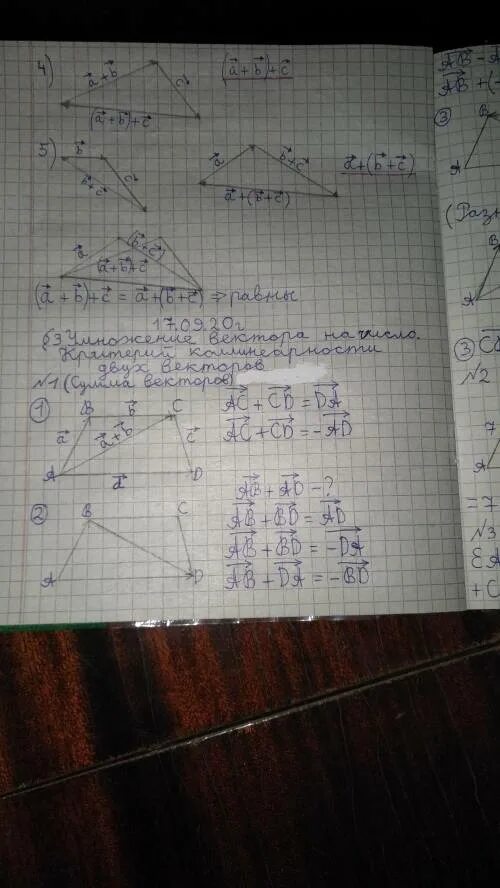 4)
a⃗+b⃗
c⃗
(a⃗+b⃗)+c⃗
(a⃗+b⃗)+c⃗
5)
b⃗
c⃗
b⃗+c⃗
a⃗
b⃗+c⃗
a⃗+(b⃗+c⃗)
a⃗+(b⃗+c⃗)
a⃗
(b⃗+c⃗)
(a⃗+b⃗)+c⃗
(a⃗+b⃗)+c⃗ = a⃗+(b⃗+c⃗) ⇒ равны
17.09.20г
§3 Умножение вектора на число.
Критерий коллинеарности
двух векторов
№1 (Сумма векторов)
1
B b⃗ C
a⃗ a⃗+b⃗ c⃗
A d⃗ D
AC⃗ + CD⃗ = DA⃗
AC⃗ + CD⃗ = -AD⃗
2
B C
A D
AB⃗ + AD⃗ - ?
AB⃗ + BD⃗ = AD⃗
AB⃗ + BD⃗ = -DA⃗
AB⃗ - DA⃗ = -BD⃗
AB⃗ -
AB⃗ + (-
3
B
A
(Разн
B
A
3 CD
№2
7
A
= 7
№3
+ C